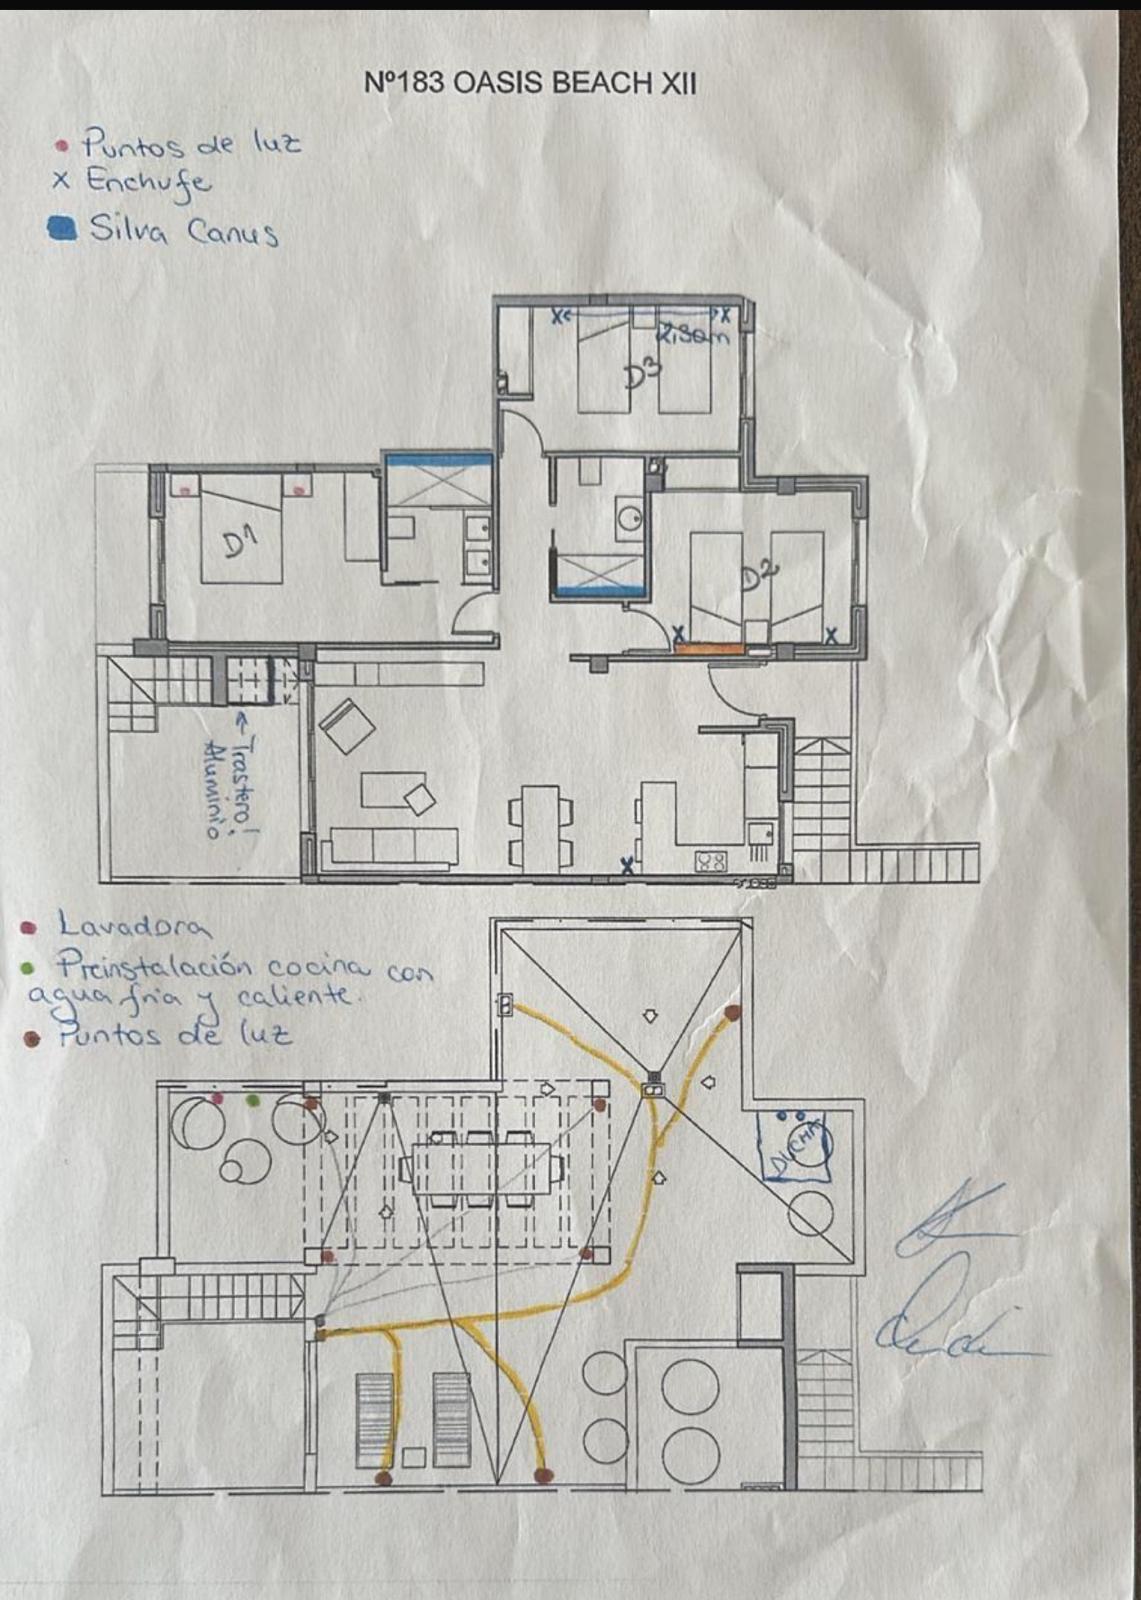 Nº183 OASIS BEACH XII
• Puntos de luz
x Enchufe
Silva Canus
x x
2,30m
D3
D1
D2
x x
← Trastero!
Aluminio
x
• Lavadora
• Preinstalación cocina con
agua fria y caliente.
• Puntos de luz
DUCHA